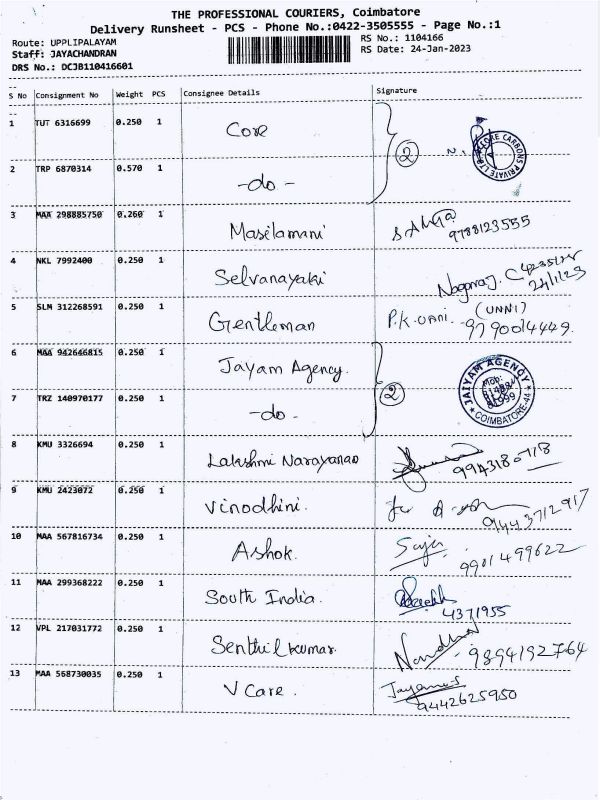 THE PROFESSIONAL COURIERS, Coimbatore
Delivery Runsheet - PCS - Phone No.:0422-3505555 - Page No.:1
Route: UPPLIPALAYAM
Staff: JAYACHANDRAN
DRS No.: DCJB110416601
RS No.: 1104166
RS Date: 24-Jan-2023
S No Consignment No Weight PCS Consignee Details Signature
1 TUT 6316699 0.250 1 Core 2
CORE CARBONS PRIVATE LTD
2 TRP 6870314 0.570 1 -do-
3 MAA 298885750 0.260 1 Masilamani 9788123555
4 NKL 7992400 0.250 1 Selvanayaki Nagaraj. C 24/1/23
5 SLM 312268591 0.250 1 Gentleman P.K. UNNI (UNNI) 9790014449
6 MAA 942646815 0.250 1 Jayam Agency. 2
JAIYAM AGENCY
Mob:
COIMBATORE-44
7 TRZ 140970177 0.250 1 -do-
8 KMU 3326694 0.250 1 Lakshmi Narayanan 9943180718
9 KMU 2423072 0.250 1 Vinodhini. 9443712917
10 MAA 567816734 0.250 1 Ashok. 9901499622
11 MAA 299368222 0.250 1 South India. 4371955
12 VPL 217031772 0.250 1 Senthilkumar. Nandha 9894192764
13 MAA 568730035 0.250 1 V Care. 9442625950